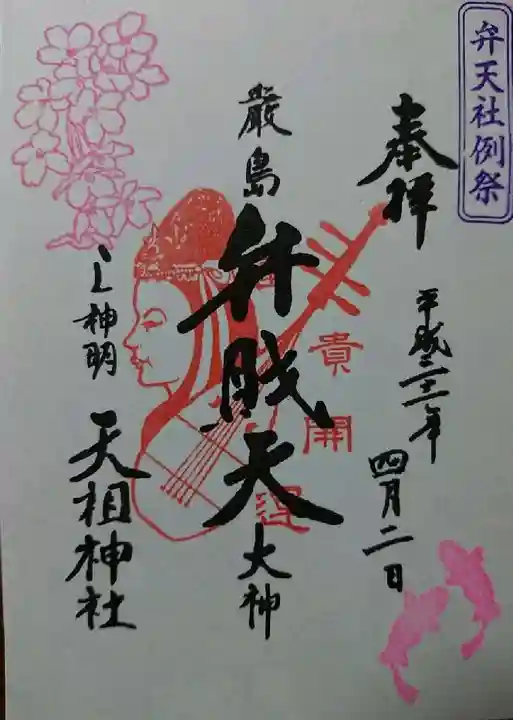 弁天社例祭
奉拝
平成三十一年
四月二日
厳島
弁財天
大神
貴
開運
上神明
天祖神社